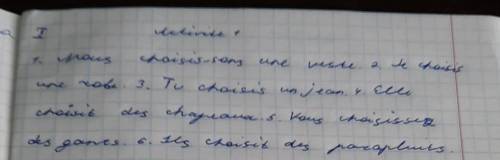 I Activité 1
1. Nous choisis-sons une veste. 2. Je choisis
une robe. 3. Tu choisis un jean. 4. Elle
choisit des chapeaux. 5. Vous choisissez
des gants. 6. Ils choisit des parapluies.